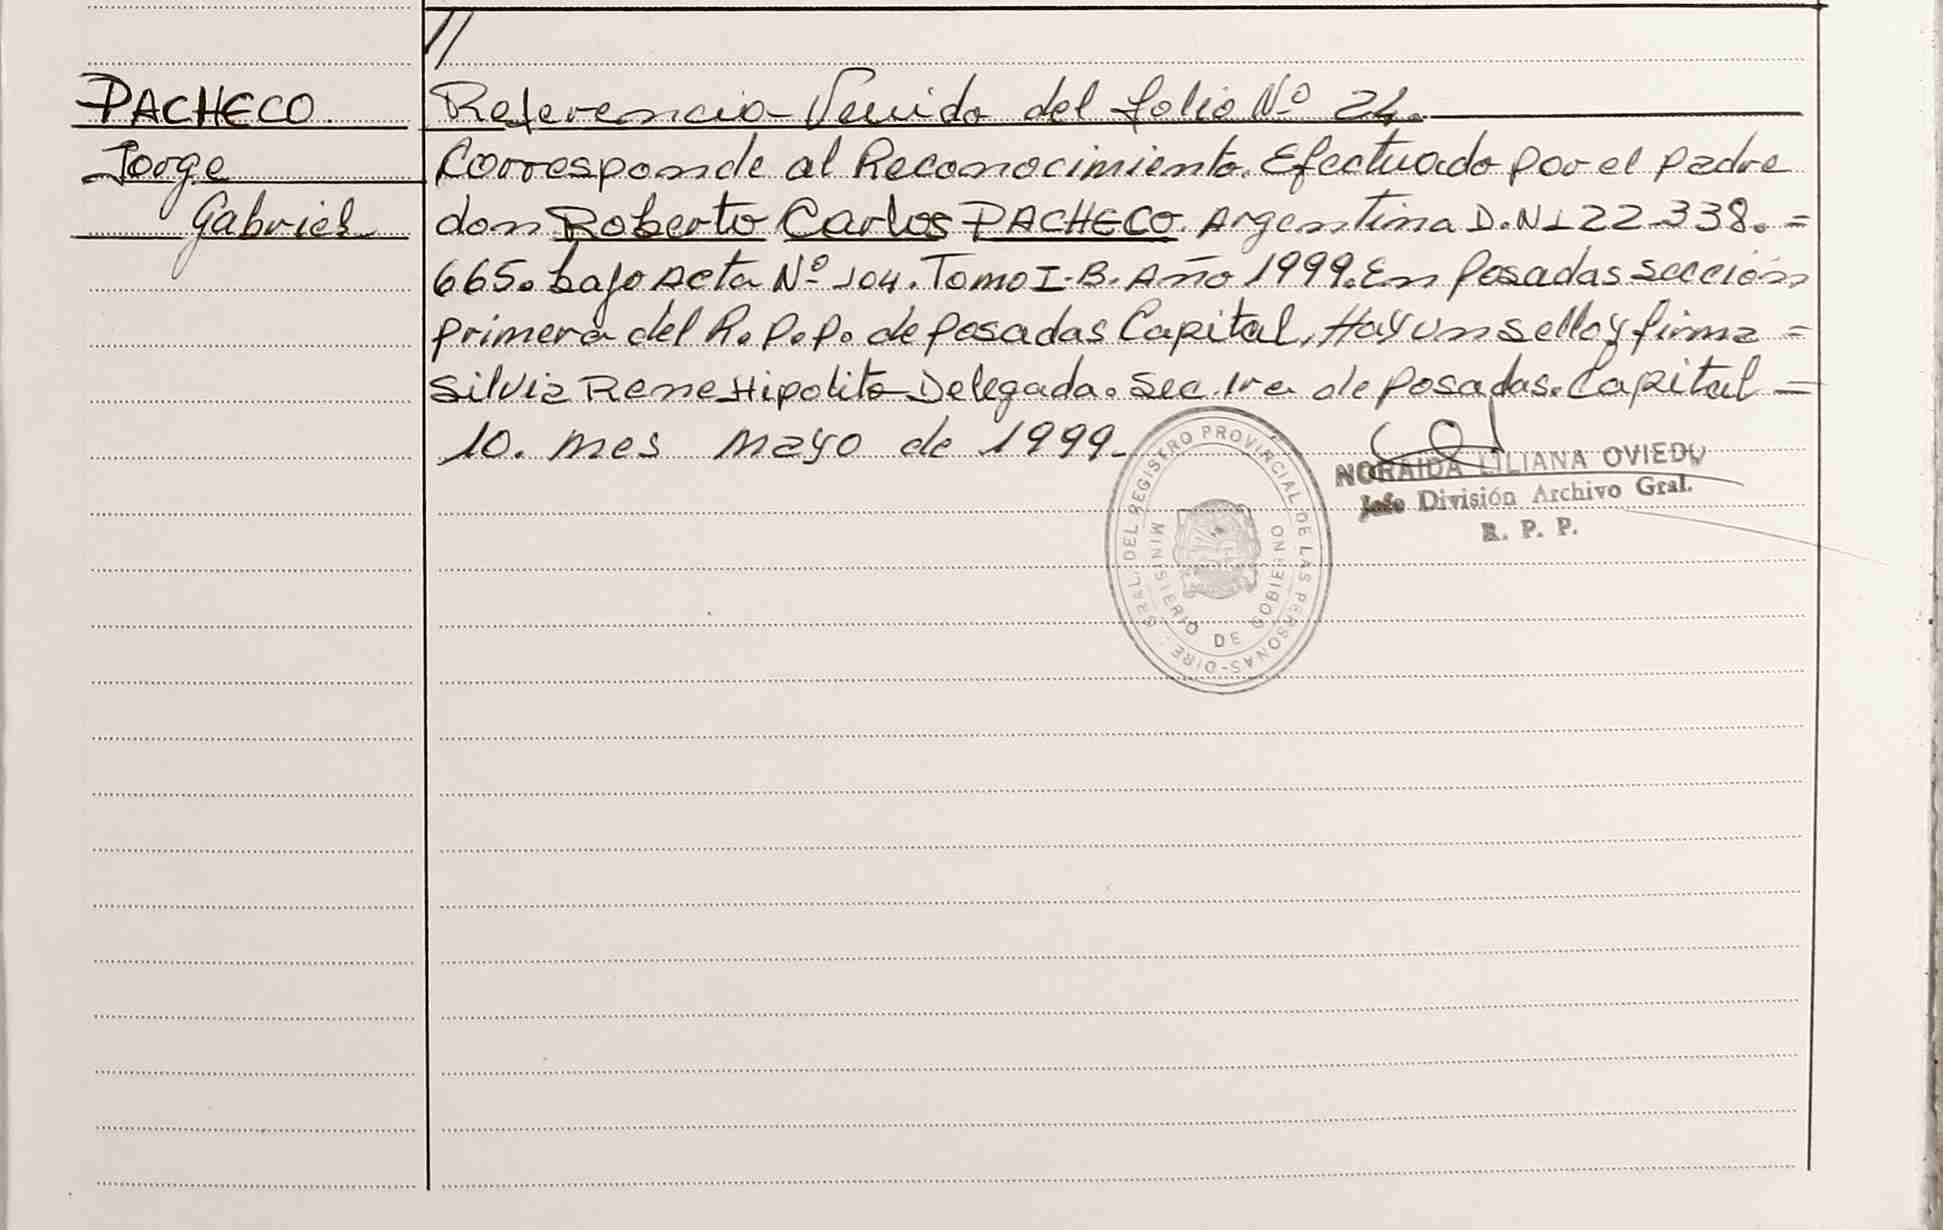 //
PACHECO. Referencia Venida del folio Nº 24.
Jorge Corresponde al Reconocimiento. Efectuado por el padre
Gabriel don Roberto Carlos PACHECO. Argentina D.N.I 22.338.=
665. bajo Acta Nº 104. Tomo I-B. Año 1999. En Posadas sección
primera del R.P.P. de Posadas Capital, Hay un sello y firma =
Silvia Rene Hipolito Delegada. Sec. 1ra de Posadas. Capital -
10. mes mayo de 1999.-
NORAIDA LILIANA OVIEDO
Jefe División Archivo Gral.
R. P. P.
GRAL. DEL REGISTRO PROVINCIAL DE LAS PERSONAS-DIRE.
MINISTERIO DE GOBIERNO